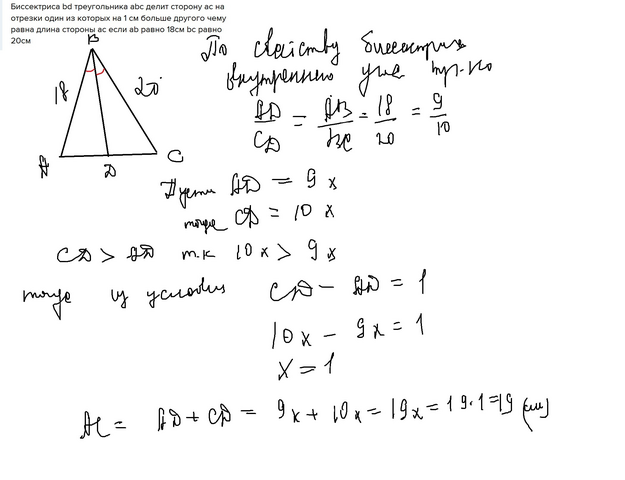 Биссектриса bd треугольника abc делит сторону ac на
отрезки один из которых на 1 см больше другого чему
равна длина стороны ac если ab равно 18см bc равно
20см
B
18
20
A
D
C
По свойству биссектрисы
внутреннего угла тр-ка
AD/CD = AB/BC = 18/20 = 9/10
Пусть AD = 9x
тогда CD = 10x
CD > AD т.к 10x > 9x
тогда из условия CD - AD = 1
10x - 9x = 1
x = 1
AC = AD + CD = 9x + 10x = 19x = 19·1 = 19 (см)